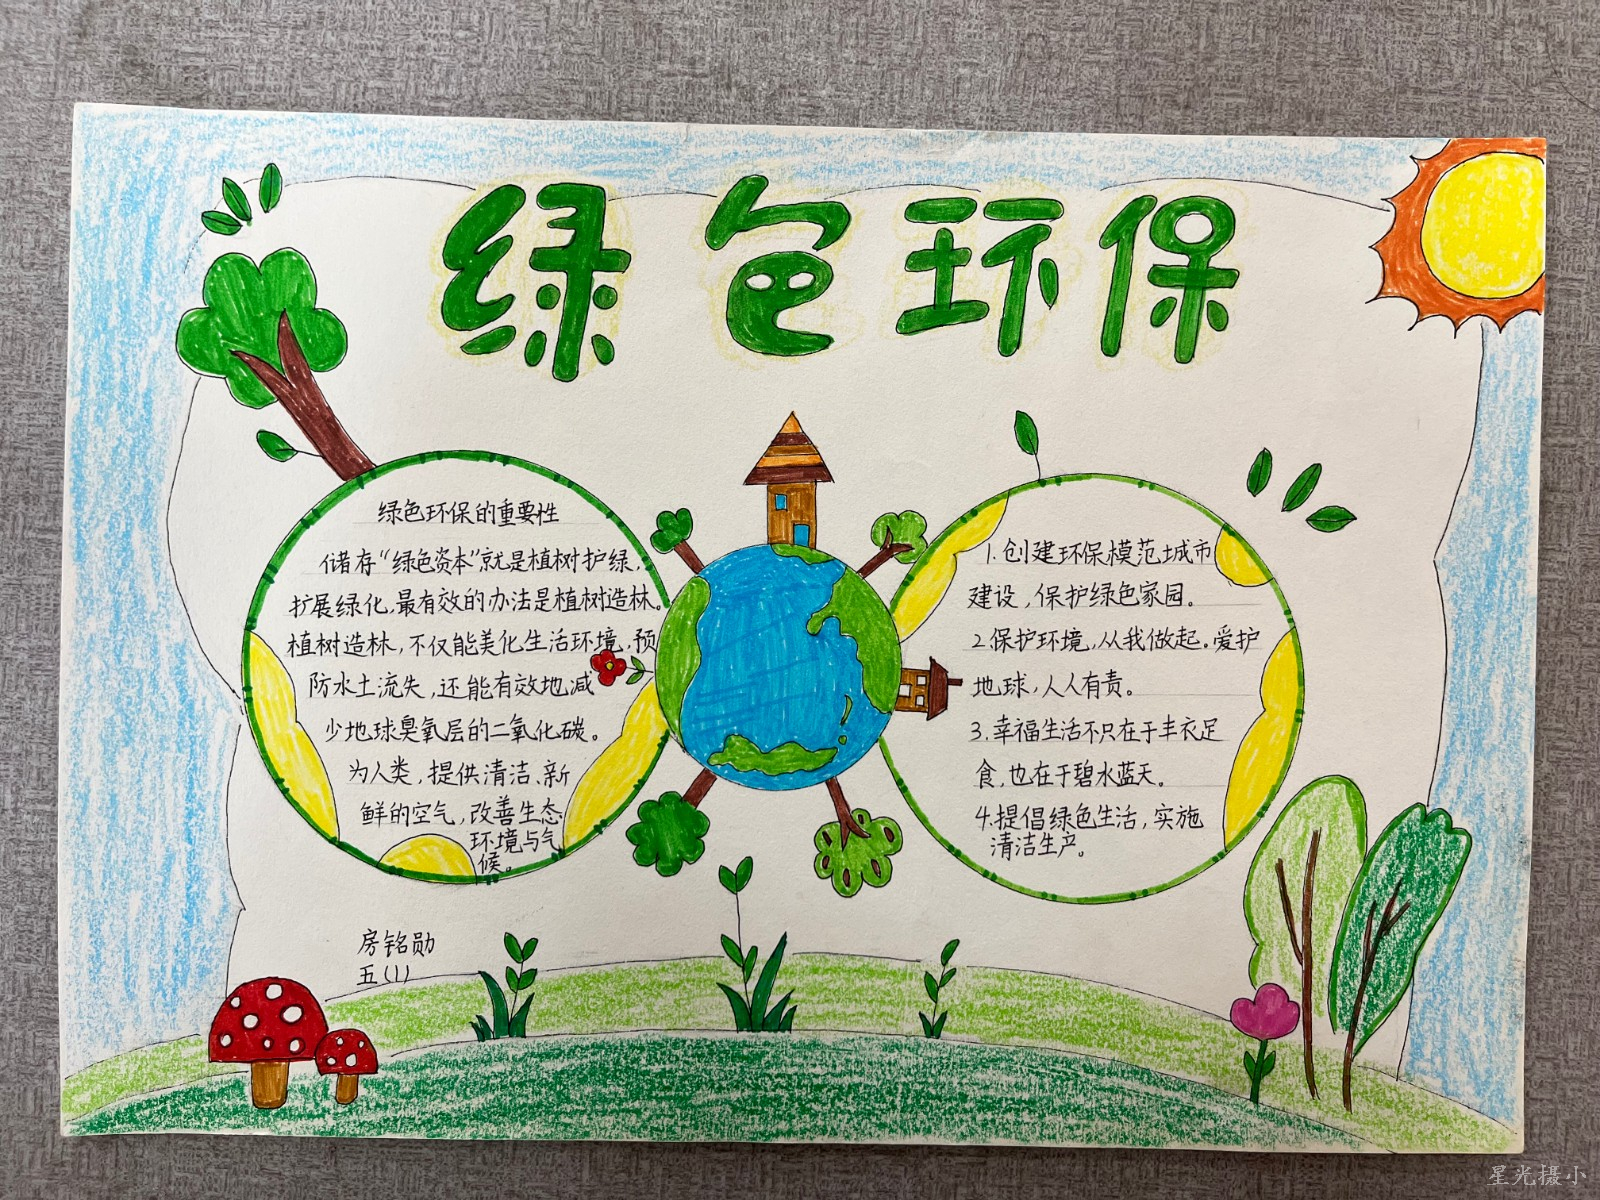 绿色环保
绿色环保的重要性
储存“绿色资本”就是植树护绿，
扩展绿化，最有效的办法是植树造林。
植树造林，不仅能美化生活环境，预
防水土流失，还能有效地减
少地球臭氧层的二氧化碳。
为人类，提供清洁、新
鲜的空气，改善生态
环境与气
候。
1.创建环保模范城市
建设，保护绿色家园。
2.保护环境，从我做起。爱护
地球，人人有责。
3.幸福生活不只在于丰衣足
食，也在于碧水蓝天。
4.提倡绿色生活，实施
清洁生产。
房铭勋
五(1)
星光摄小